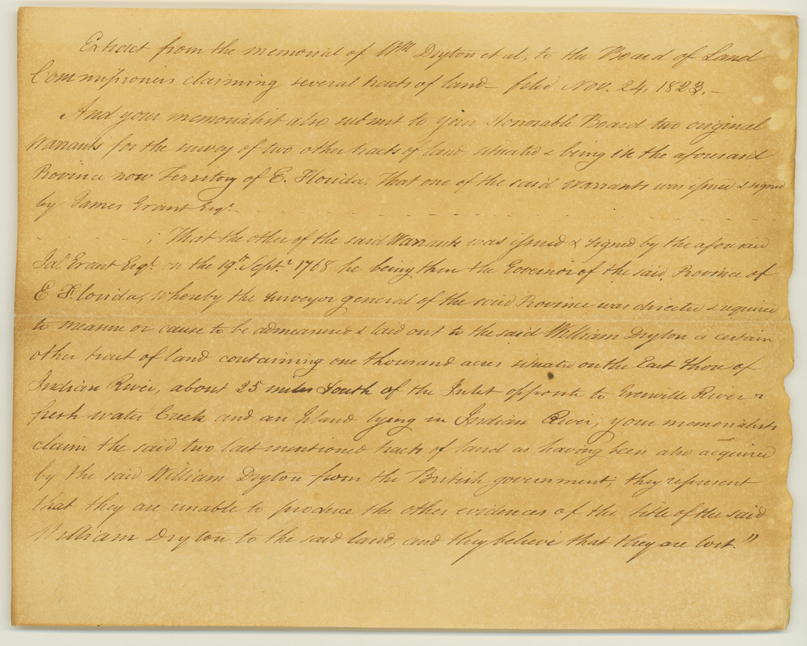 Extract from the memorial of Wm Dryton et al, to the Board of Land
Commissioners claiming several tracts of land – filed Nov. 24, 1823. –
And your memorialist also submit to your Honorable Board two original
Warrants for the survey of two other tracts of land situated & being in the aforesaid
Province now Territory of E. Florida. That one of the said warrants was issued & signed
by James Grant Esqr. - - - - - - - - - -
- - - - ; That the other of the said Warrants was issued & signed by the aforesaid
Jas. Grant Esqr. on the 19th Septr. 1768 he being then the Governor of the said Province of
E Florida, whereby the surveyor general of the said Province was directed & required
to measure or cause to be admeasured & laid out to the said William Dryton a certain
other tract of land containing one thousand acres situate on the East Shore of
Indian River, about 25 miles South of the Inlet opposite to Grenville River &
fresh water Creek and an Island lying in Indian River, your memorialists
claim the said two last mentioned tracts of land as having been also acquired
by the said William Dryton from the British government; they represent
that they are unable to produce the other evidences of the title of the said
William Dryton to the said land, and they believe that they are lost."